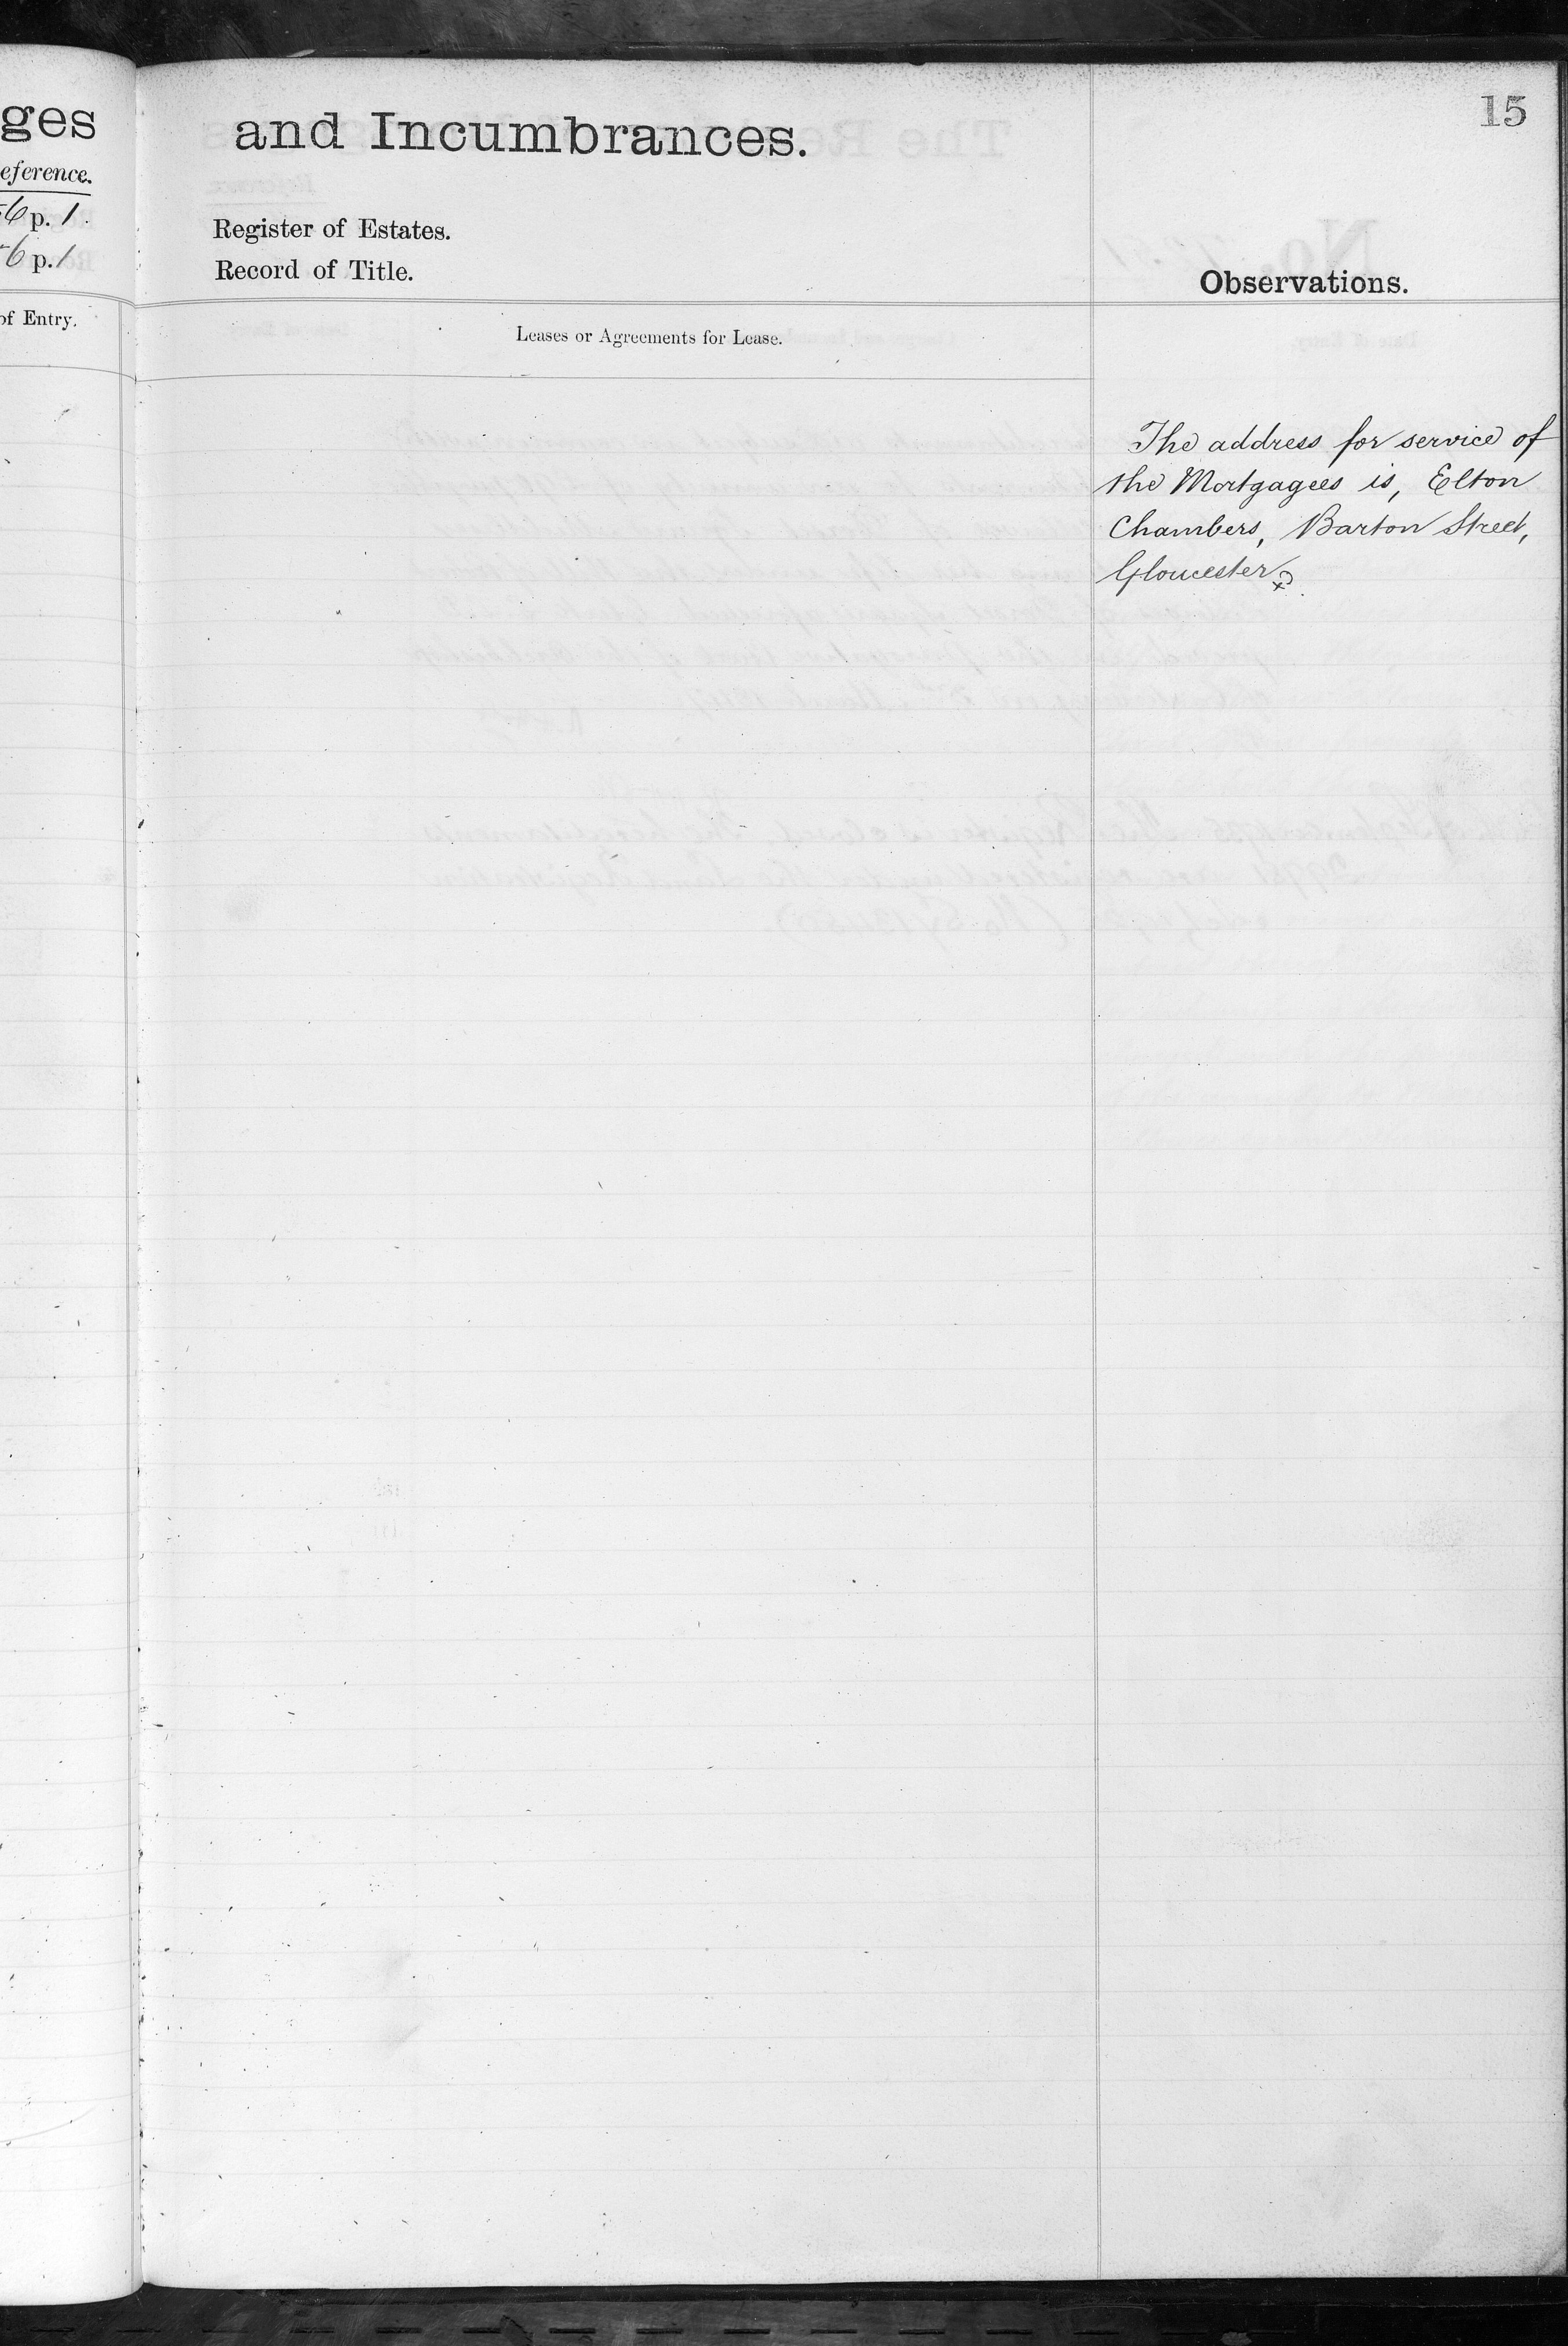 ges
eference.
6 p. 1.
6 p. 1
of Entry.
15
and Incumbrances.
Register of Estates.
Record of Title.
Observations.
Leases or Agreements for Lease.
The address for service of
the Mortgagees is, Elton
Chambers, Barton Street,
Gloucester